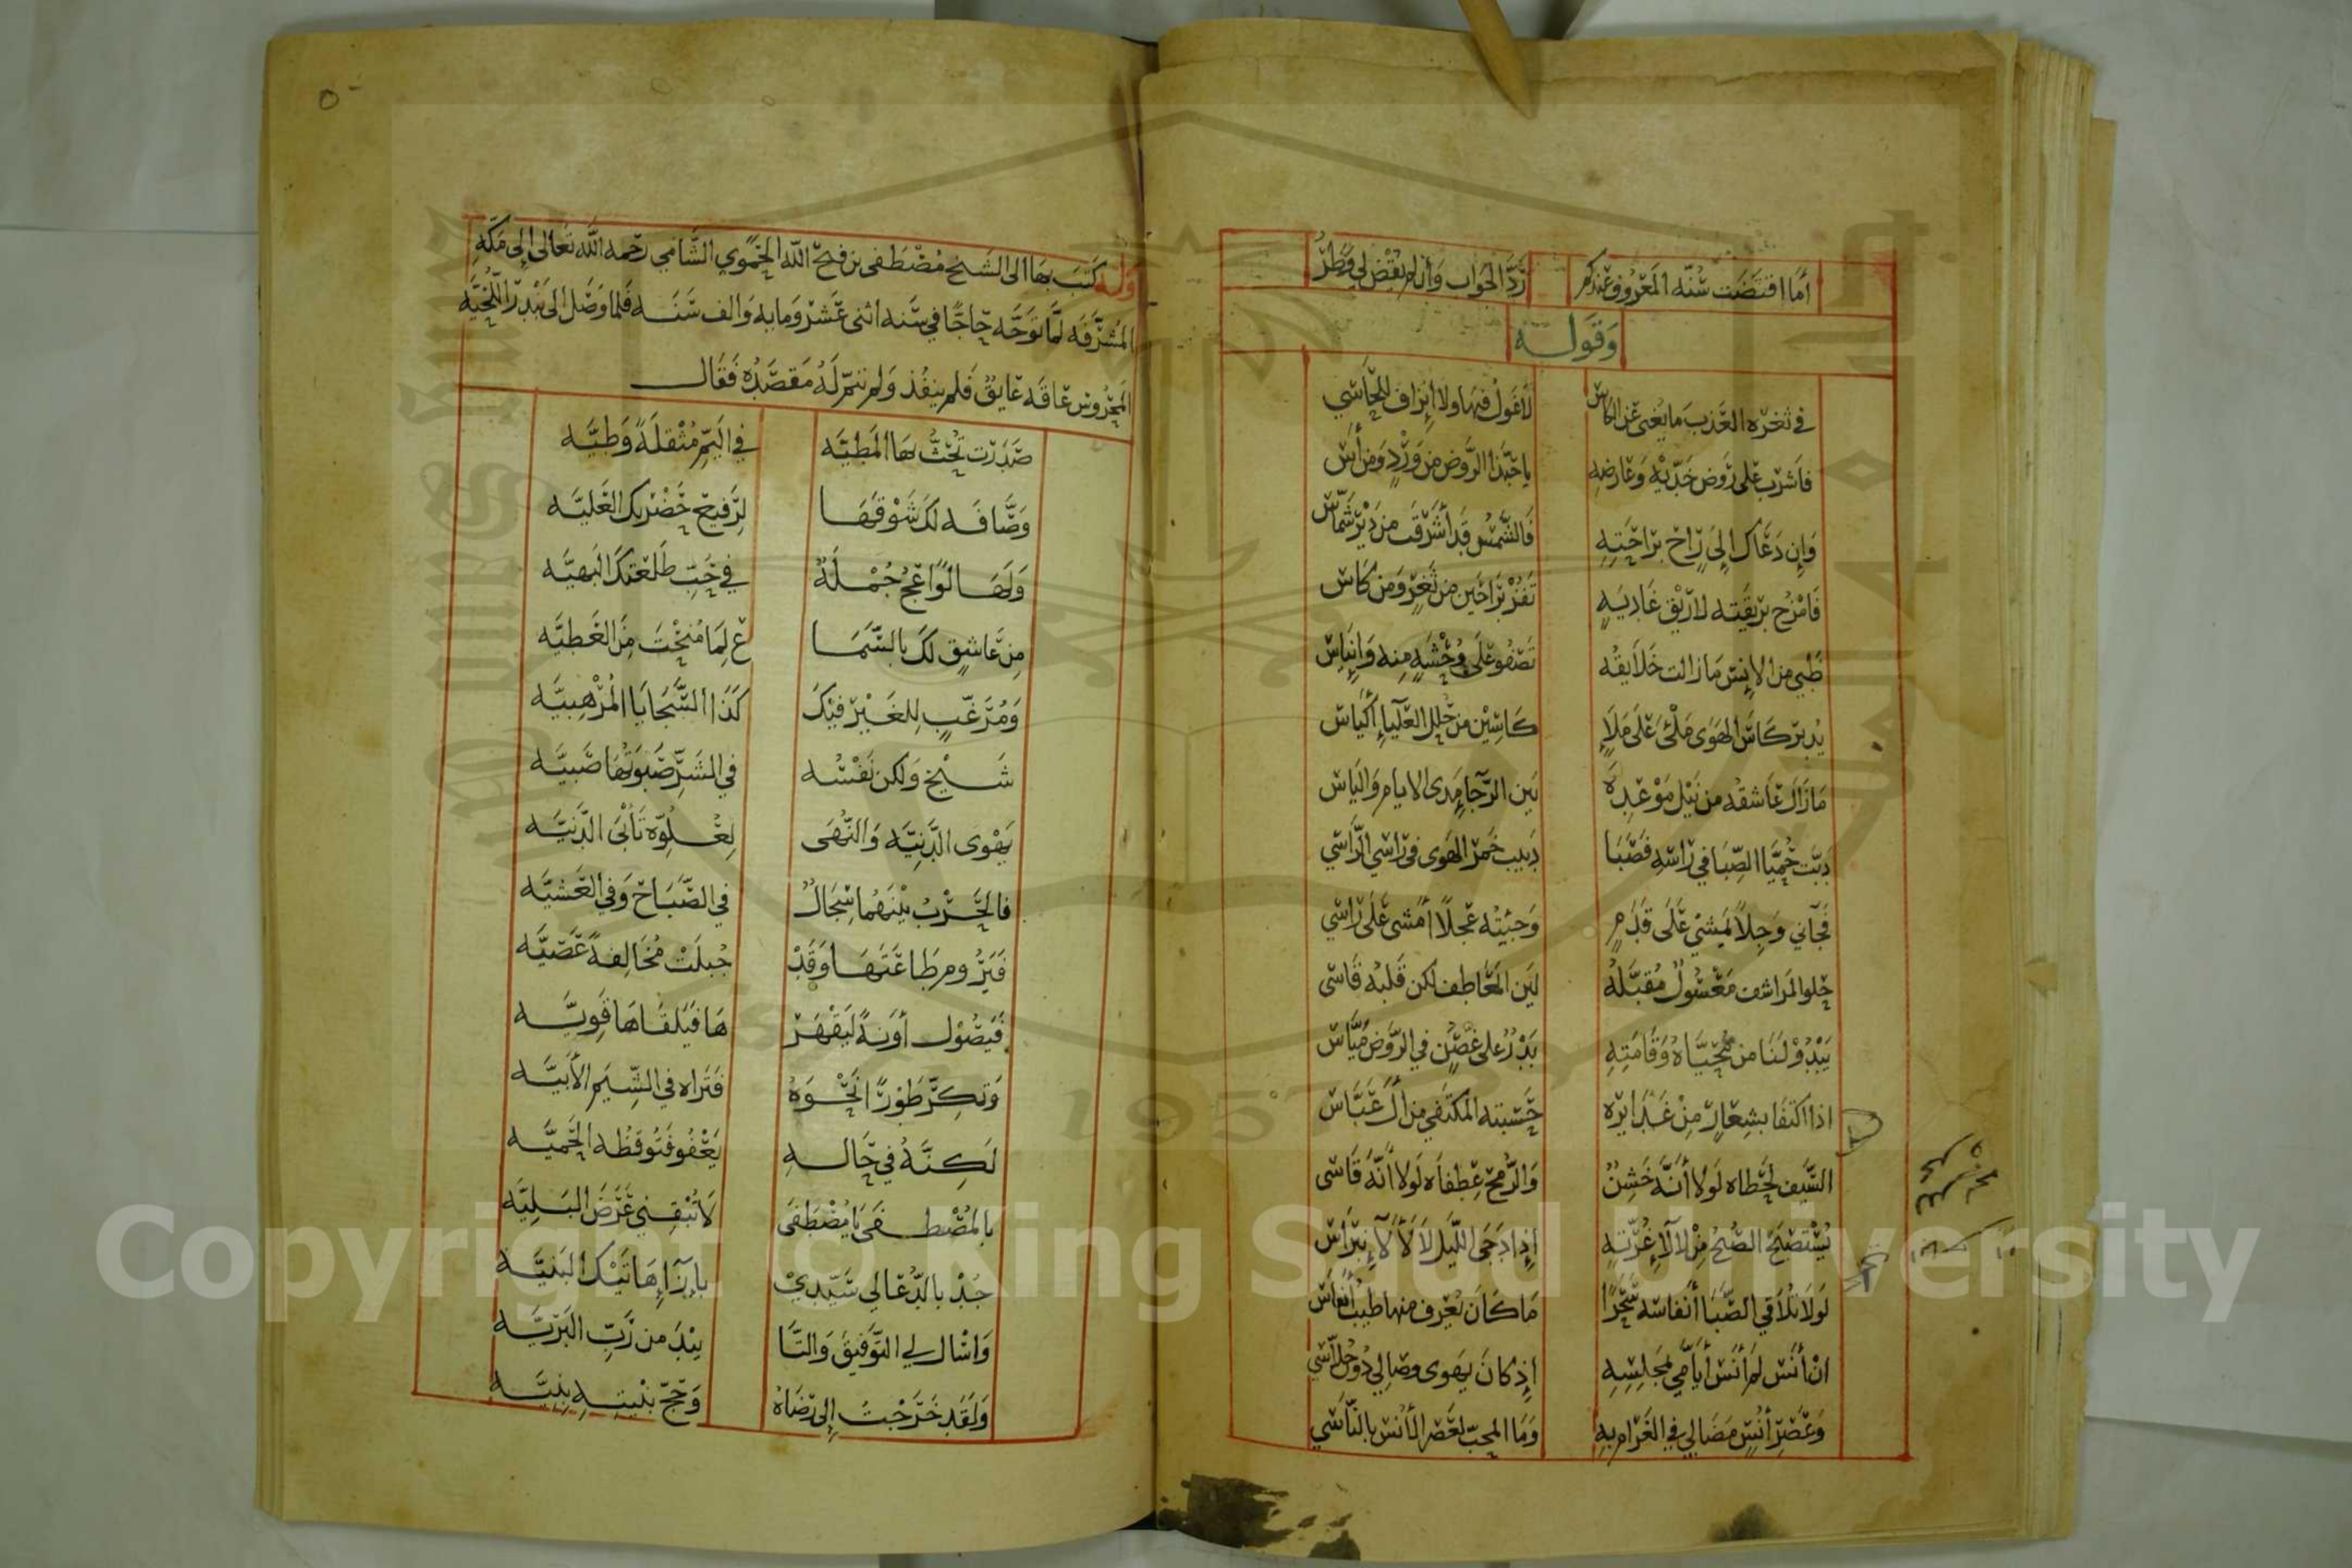 أما اقتضت سنه المعروف عندكم ردّ الجواب وان لم نقض لي وطرُ
وقوله
في ثغره العذب ما يغنى عن الكاس لا غول فيها ولا إنزاف للحاسي
فاشرب على روض خدّيه وعارضه يا حبّذا الروض من وردٍ ومن أسِ
وإن دعاك إلى راحٍ براحته فالشمس قد أشرقت من دير شمّاس
فامزج بريقته لا ريق غاديه تفز براحين من ثغرٍ ومن كاس
ظبي من الانس مازالت خلايقه تصفو على وحشه منه وإيناس
يدير كاس الهوى ملئى على ملإ كاسين من حلل العليآء أكياس
مازال عاشقه من نيل موعده بين الرجآء مدى الايام والياس
دبّت حميّا الصِّبا في راسه فصبا دبيب خمر الهوى في راسي الراسي
فجآني وجلاً يمشي على قدمٍ وجئته عجلاً أمشى على راسي
حلو المراشف معسولٌ مقبّله لين المعاطف لكن قلبه قاسى
يبدو لنا من محيّاه وقامته بدرٌ على غصنٍ في الروض ميّاس
اذا اكتفا بشعارٍ من غدايره حسبته المكتفي من أل عبّاس
السيف لحظاه لولا أنّه خشنٌ والرمح عطفاه لولا انّه قاسى
يستصبح الصبح من لالآء غرّته إذا دجى الليل لا لألآء نبراس
لولا تلاقي الصّبا أنفاسه سحرًا ما كان يعرف منها طيب أنفاس
ان أنس لم أنس أيامي لمجلسه إذ كان يهوى وصالي دو جلاسي
وعصر أنسٍ مضالي في الغرام به وما المحبّ لعصر الأنس بالناسي
٥٠
وله كتب بها الى الشيخ مصطفى بن فتح الله الحموي الشامي رحمه الله تعالى إلى مكة
المشرّفة لمّا توجّه حاجًّا في سنه اثنى عشر ومايه والف سنه فلما وصل الى بندر اللّحيّه
المحروس عاقه عايقٌ فلم ينفذ ولم تتمّ له مقصده فقال
صدرت تحثّ بها المطيّه في اليمّ مثقلةً وطيّه
وصّافه لك شوقها لرفيع حضرتك العليّه
ولها لواعج جملةٌ في حبّ طلعتك البهيّه
من عاشقٍ لك بالسّما ع لما منحت من العطيّه
ومرغّبٍ للغير فيك كذا السجايا المرهبيّه
شيخ ولكن نفسه في الشرّ صبوتها صبيّه
يهوى الدنيّه والنهى لعلوّه تأبى الدنيّه
فالحرب بينهما سجالٌ في الصّباح وفي العشيّه
فيروم طاعتها وقد جبلت مخالفةً عصيّه
فيصول أونةً ليقهر ها فيلقاها قويّه
وتكرّ طورًا نحوه فتراه في الشيم الأبيّه
لكنّه في حاله يغفو فتوقظه الحميّه
بالمصطفى يا مصطفى لا تبقني غرض البليّه
جد بالدعا لي سيّدي بإزآء هاتيك البنيّه
واسال لي التوفيق والتّا ييد من ربّ البريّه
ولقد خرجت إلى رضاه وحجّ بنيته بنيّه